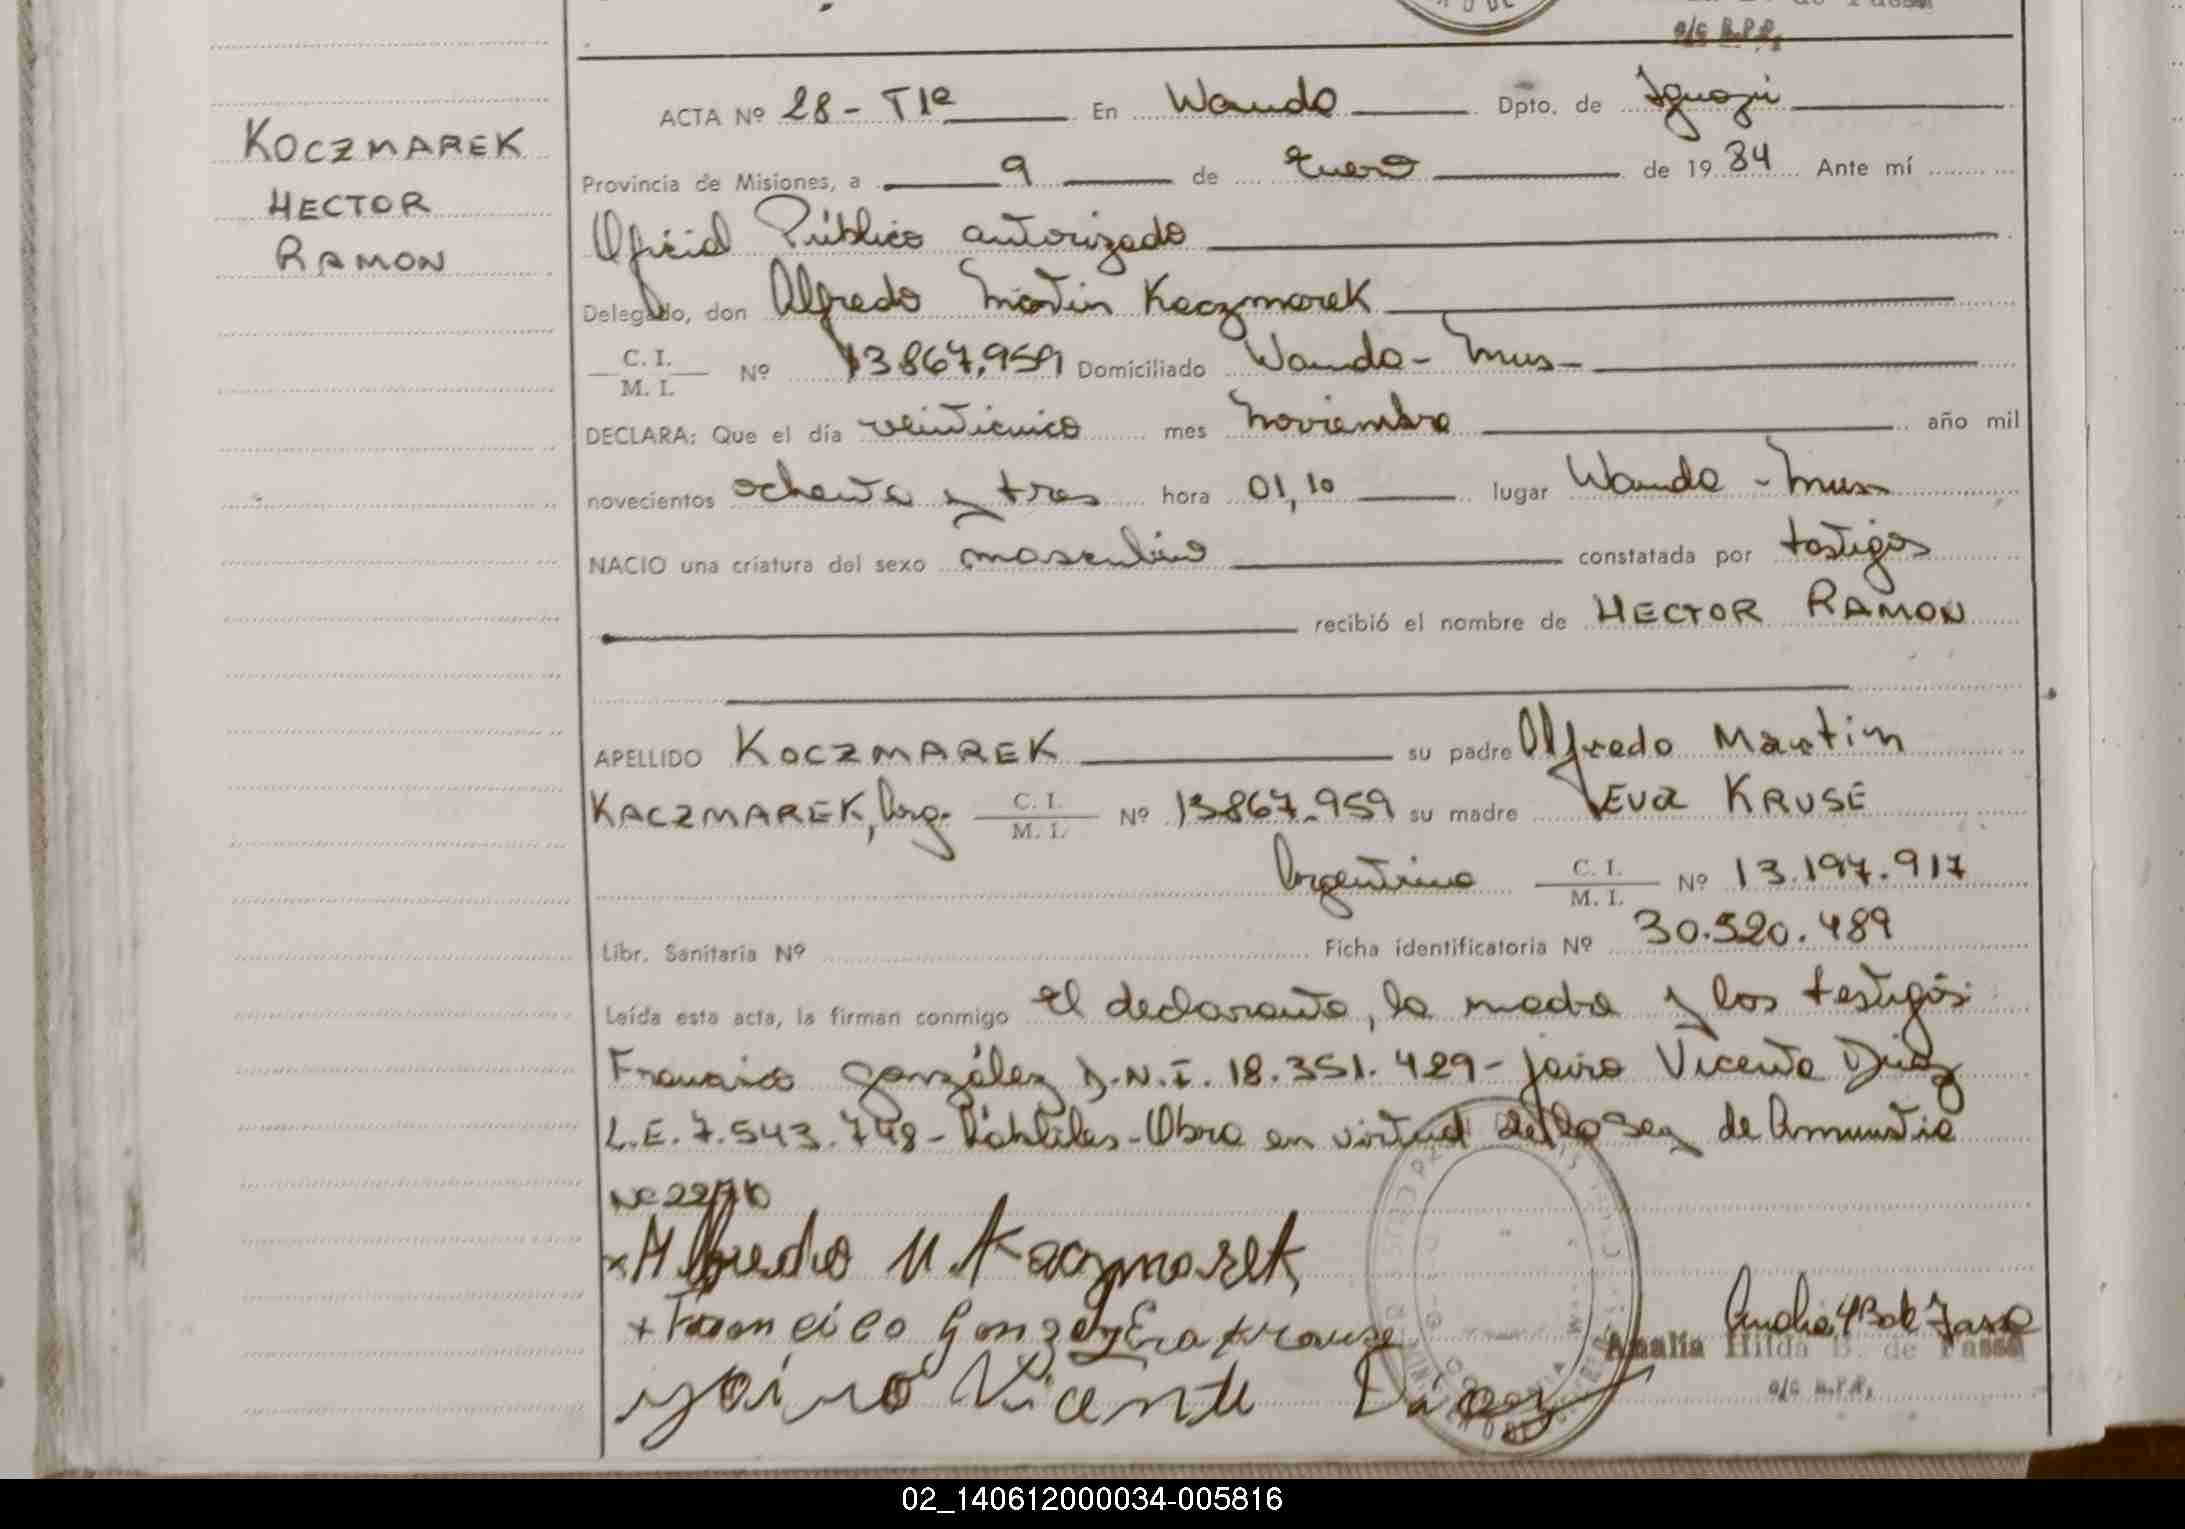 a/c R.P.P.
KOCZMAREK
HECTOR
RAMON
ACTA Nº 28 - T1º En Wanda Dpto. de Iguazú
Provincia de Misiones, a 9 de Enero de 1984 Ante mí
Oficial Público autorizado
Delegado, don Alfredo Martin Kaczmarek
C. I.
M. I. Nº 13867.959 Domiciliado Wanda - Mns -
DECLARA: Que el día veinticinco mes Noviembre año mil
novecientos ochenta y tres hora 01,10 lugar Wanda - Mns
NACIO una criatura del sexo masculino constatada por testigos
recibió el nombre de HECTOR RAMON
APELLIDO KOCZMAREK su padre Alfredo Martin
KACZMAREK, Arg. C. I. M. I. Nº 13867.959 su madre EVA KRUSE
Argentina C. I. M. I. Nº 13.197.917
Libr. Sanitaria Nº Ficha identificatoria Nº 30.520.489
Leída esta acta, la firman conmigo el declarante, la madre y los testigos
Francisco González D.N.I. 18.351.429 - Jairo Vicente Diaz
L.E. 7.543.748 - Hábiles - Obra en virtud de la Ley de Amnistia
Alfredo M. Kaczmarek
Francisco Gonzalez Eva Krause
Jairo Vicente Diaz
Amalia Hilda B. de Fassa
a/c R.P.P.
02_140612000034-005816